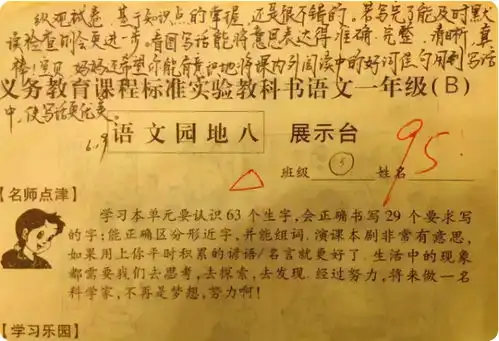 纵观试卷，基于知识点的掌握，还是很不错的。若写完了能及时默
读检查则会更进一步。看图写话能将意思表达得准确、完整、清晰，真
棒！宝贝，妈妈还希望你能有意识地将课内外阅读中的好词佳句用到写话
义务教育课程标准实验教科书语文一年级(B)
中，使写话更优美。
6.19
语文园地八 展示台
95
班级 5 姓名
【名师点津】
学习本单元要认识63个生字,会正确书写29个要求写
的字;能正确区分形近字,并能组词.演课本剧非常有意思,
如果用上你平时积累的谚语/名言就更好了.生活中的现象
都需要我们去思考,去探索,去发现.经过努力,将来做一名
科学家,不再是梦想,努力啊!
【学习乐园】